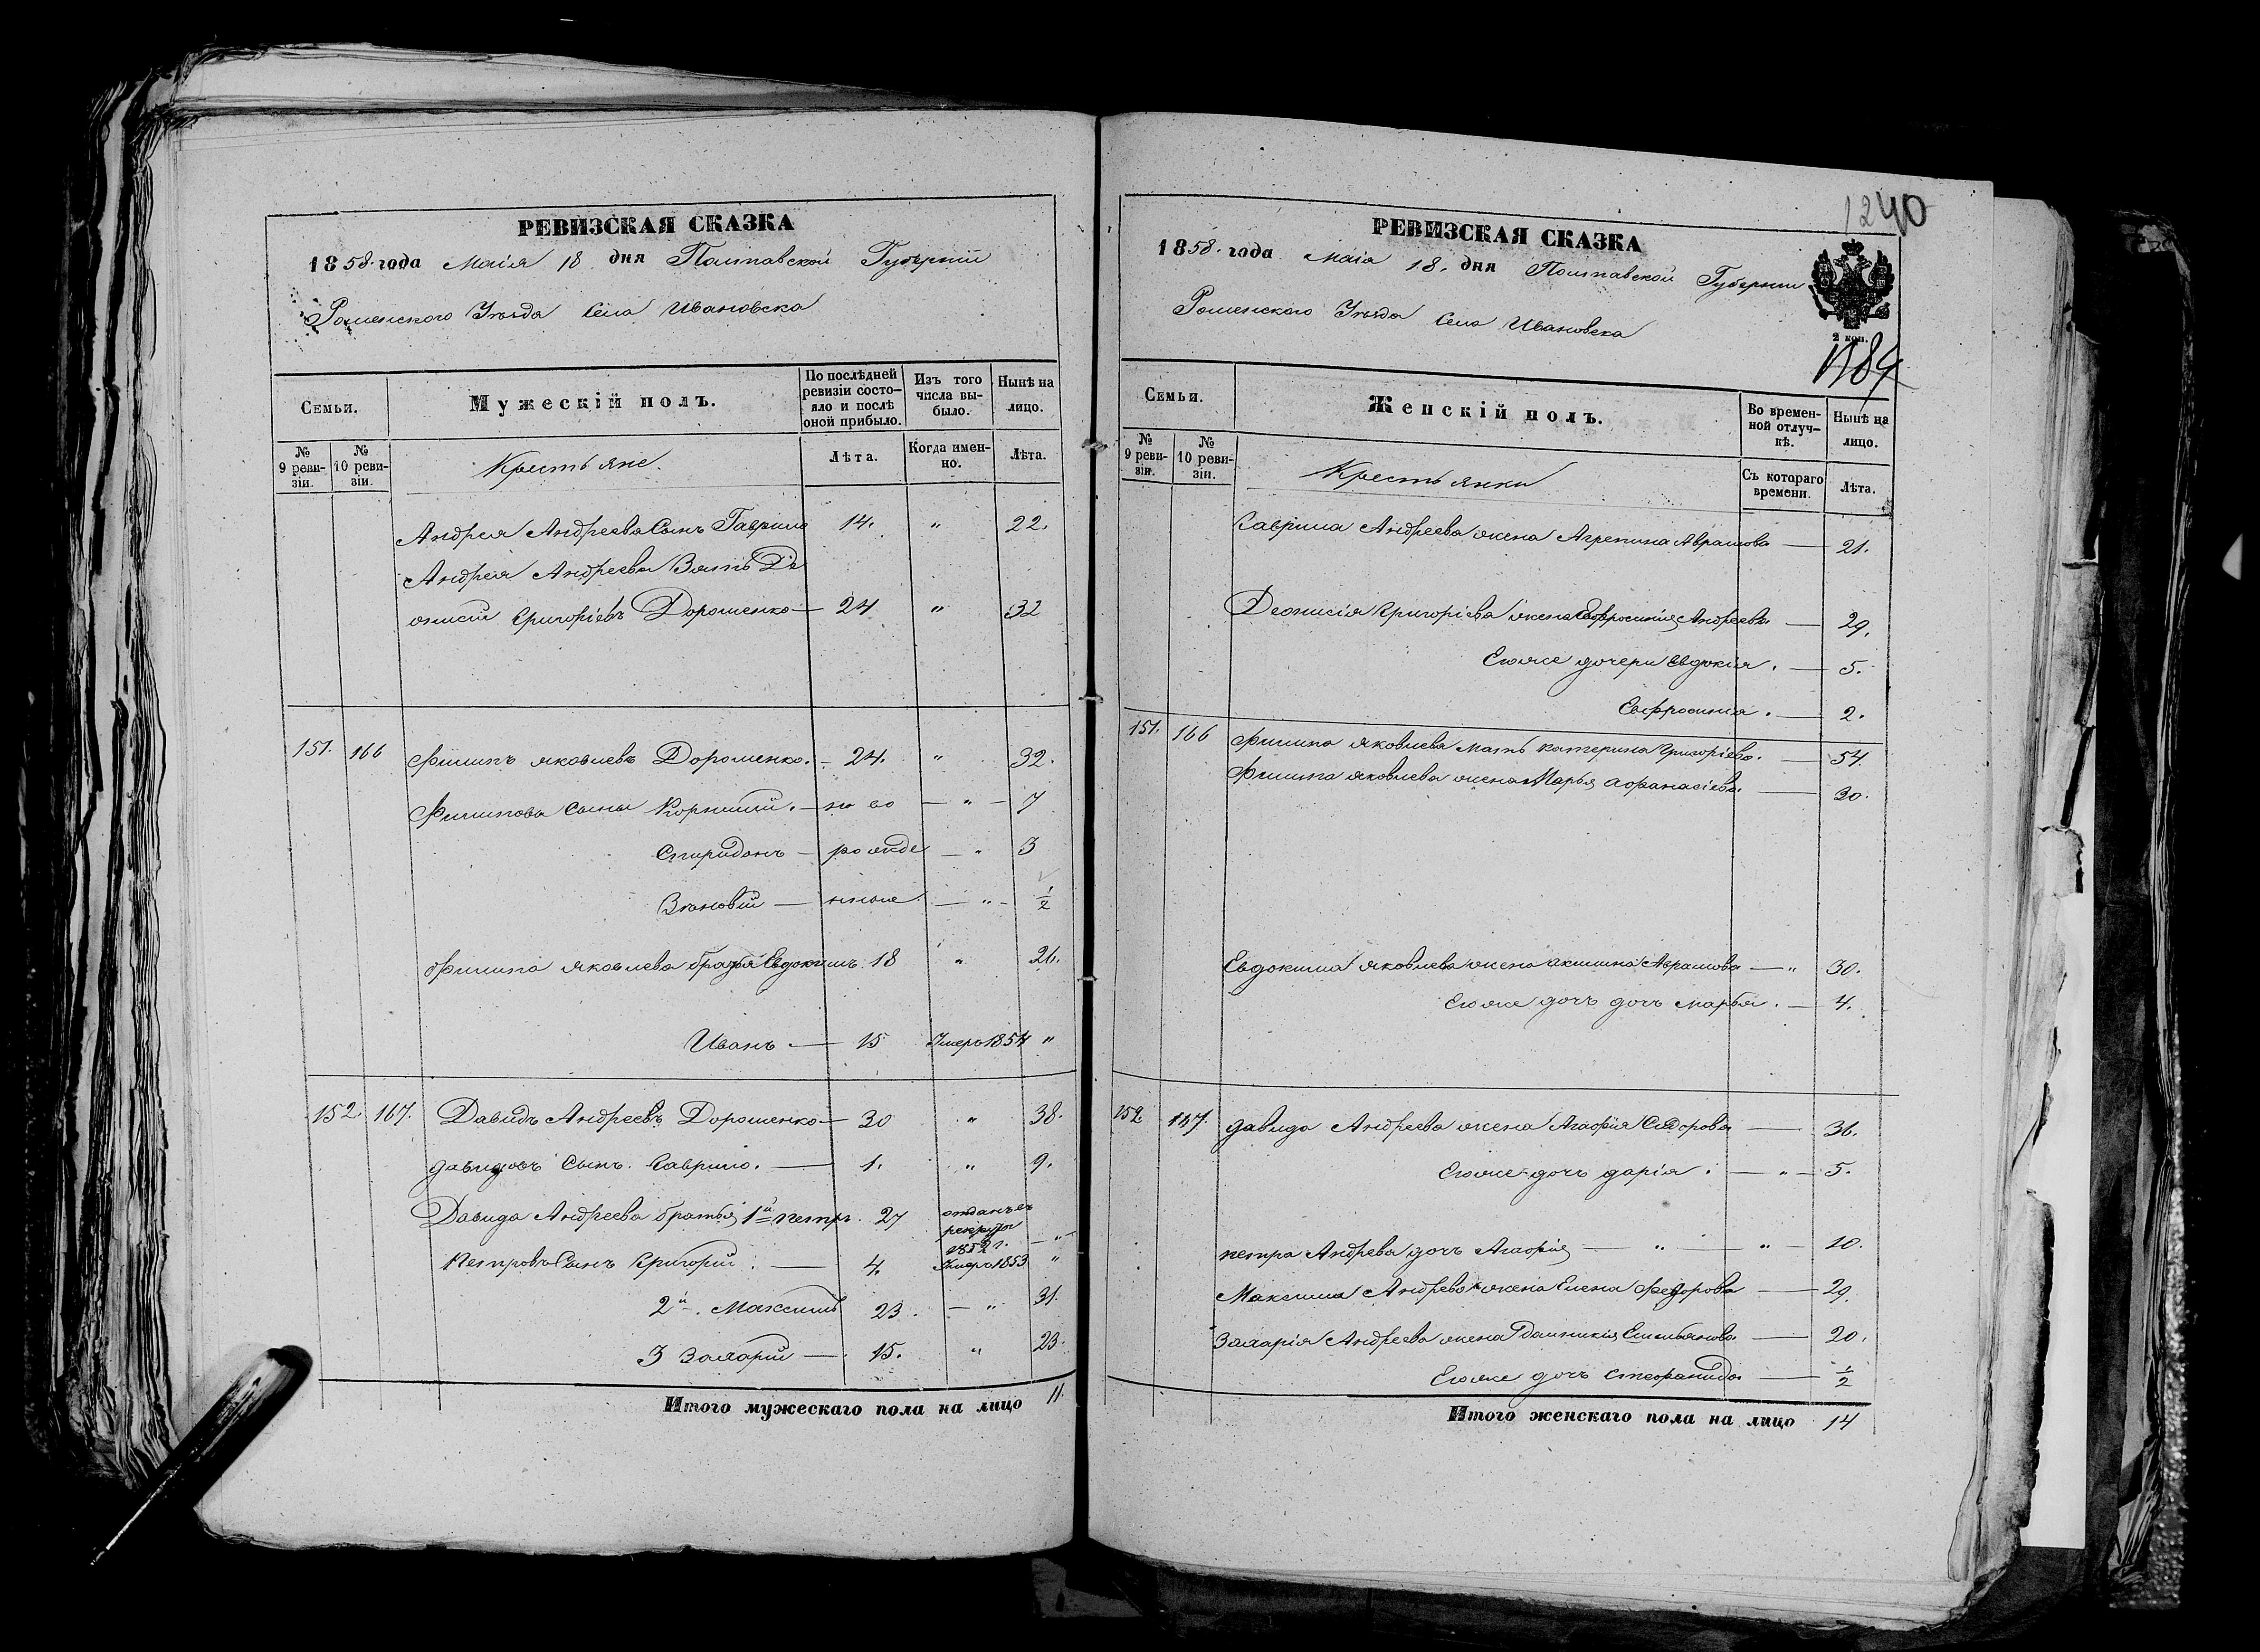 РЕВИЗСКАЯ СКАЗКА
1858. года Маія 18 дня Полтавской Губерніи
Роменского Уѣзда Села Ивановска
Семьи.
Мужескій полъ.
По послѣдней ревизіи состояло и послѣ оной прибыло.
Изъ того числа выбыло.
Нынѣ на лицо.
№ 9 ревизіи.
№ 10 ревизіи.
Крестьяне.
Лѣта.
Когда именно.
Лѣта.
Андрея Андреева Сынъ Гаврило 14. " 22.
Андрея Андреева Зять Де
онисій Григоріевъ Дорошенко — 24 " 32
151. 166 Филипъ Яковлевъ Дорошенко. — 24. " 32.
Филипова Сыны Корнилій. — по со — " — 7
Спиридонъ — рожде — " 3
Зѣновій — нные — " — 1/2
Филипа Яковлева братья Евдокимъ 18 " 26.
Иванъ. — 15 Умеръ 1854 "
152. 167. Давидъ Андреевъ Дорошенко — 30 " 38.
Давидовъ Сынъ. Гаврило. — 1. " 9.
Давида Андреева братья 1й Петръ. 27 отданъ въ рекруты 1852 г. — "
Петровъ Сынъ Григорій. — 4. Умеръ 1853 "
2й. Максимъ 23. — " 31.
3 Захарій — 15. " 23.
Итого мужескаго пола на лицо 11.
1240
РЕВИЗСКАЯ СКАЗКА
1858. года Маія 18. дня Полтавской Губерніи
Роменского Уѣзда Села Ивановска
2 коп.
Семьи.
Женскій полъ.
Во временной отлучкѣ.
Нынѣ на лицо.
№ 9 ревизіи.
№ 10 ревизіи.
Крестьянки
Съ котораго времени.
Лѣта.
Гаврила Андреева жена Агрепина Аврамова — 21.
Деонисія Григоріева жена Евфросинія Андреева — 29.
Егоже дочери Евдокія. — 5.
Евфросинія. — 2.
151. 166 Филипа Яковлева мать Катерина Григоріева. — 54.
Филипа Яковлева жена Марья Афанасіева. — 30.
Евдокима Яковлева жена Акилина Аврамова — " 30.
Егоже дочъ дочъ Марья. — 4.
152 167. Давида Андреева жена Агафія Сидорова — 36.
Егоже дочъ Дарія. — " — 5.
Петра Андрева дочъ Агафія — " — " — 10.
Максима Андрева жена Елена Федорова — 29.
Захарія Андреева жена Домникія Емильянова — 20.
Егоже дочъ Стефанида — 1/2
Итого женскаго пола на лицо 14